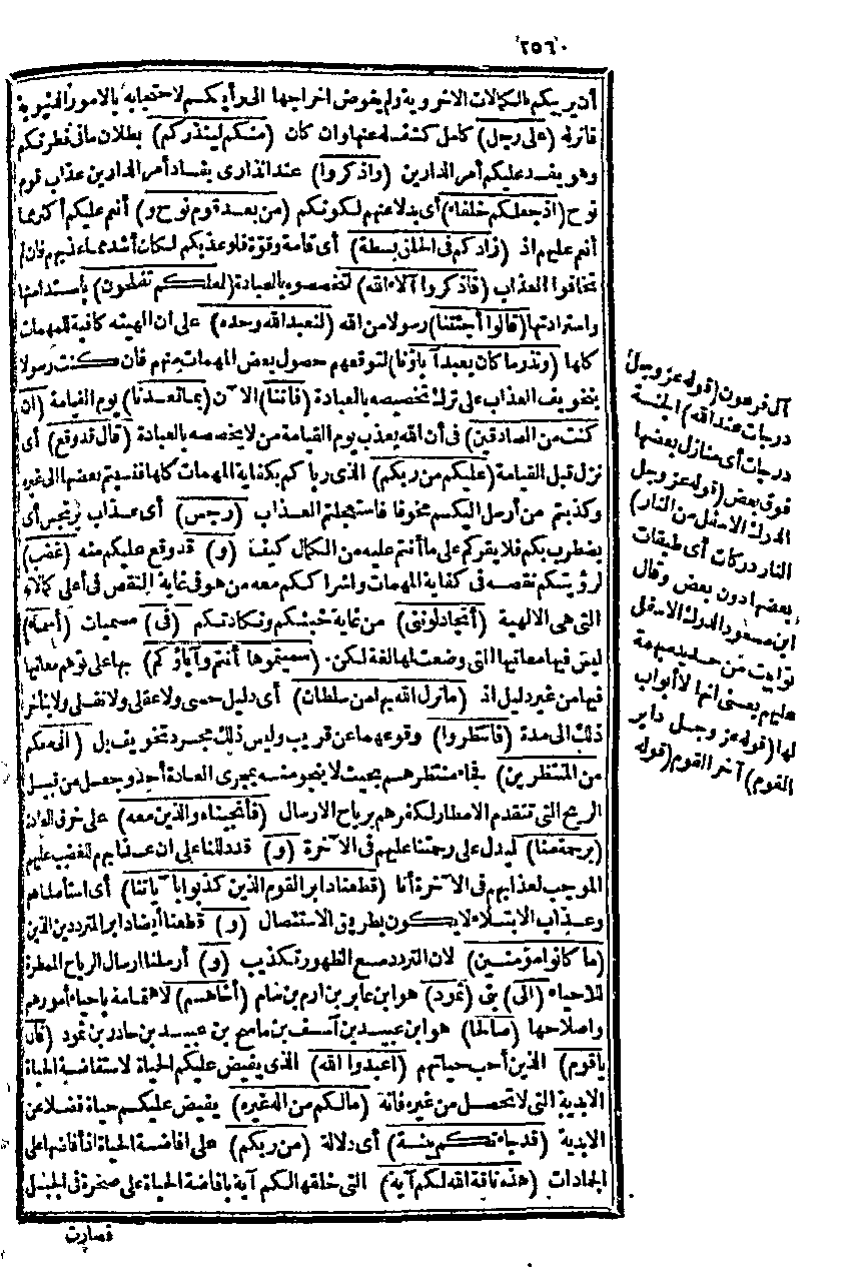 ٢٥٦
أن يربيكم بالكمالات الاخروية ولم يفوض اخراجها الى رأيكم لاحتجابه بالامور الدنيوية
فانزله (على رجل) كامل كشف له عنها وان كان (منكم لينذركم) بطلان ما فى فطرتكم
وهو يفسد عليكم أمر الدارين (واذكروا) عند انذارى بفساد أمر الدارين عذاب قوم
نوح (اذ جعلكم خلفاء) أى بدلا عنهم لكونكم (من بعد قوم نوح و) أنم عليكم أكثر مما
أنم عليهم اذ (زادكم فى الخلق بسطة) أى قامة وقوة فلو عذبكم لكان أشد مما عذبهم فان لم
تخافوا العذاب (فاذكروا آلاء الله) لتخصصوه بالعبادة (لعلكم تفلحون) باستدامتها
واستزادتها (قالوا أجئتنا) رسولا من الله (لنعبد الله وحده) على ان الهيته كافية للمهمات
كلها (ونذر ما كان يعبد آباؤنا) لتوقعهم حصول بعض المهمات منهم فان كنت رسولا
بتخويف العذاب على ترك تخصيصه بالعبادة (فأتنا) الآن (بما تعدنا) يوم القيامة (ان
كنت من الصادقين) فى أن الله يعذب يوم القيامة من لا يخصصه بالعبادة (قال قد وقع) أى
نزل قبل القيامة (عليكم من ربكم) الذى رباكم بكفاية المهمات كلها فنسبتم بعضها الى غيره
وكذبتم من أرسل اليكم مخوفا فاستعجلتم العذاب (رجس) أى عذاب يرتجس أى
يضطرب بكم فلا يقركم على ما أنتم عليه من الكمال كيف (و) قد وقع عليكم منه (غضب)
لرؤيتكم نقصه فى كفاية المهمات واشراككم معه من هو فى غاية النقص فى أعلى كمالاته
التى هى الالهية (أتجادلوننى) من غاية خبثكم ونكادتكم (فى) مسميات (أسماء)
ليس فيها معانيها التى وضعت لها لغة لكن (سميتموها أنتم وآباؤكم) بها على توهم معانيها
فيها من غير دليل اذ (ما نزل الله بها من سلطان) أى دليل حسى ولا عقلى ولا نقلى ولا يتأخر
ذلك الى مدة (فانتظروا) وقوعهما عن قريب وليس ذلك مجرد تخويف بل (انى معكم
من المنتظرين) فجاء منتظرهم بحيث لا ينجو منه بمجرى العادة أحد وجعل من قبيل
الريح التى تتقدم الامطار لكفرهم برياح الارسال (فأنجيناه والذين معه) على خرق العادة
(برحمة منا) ليدل على رحمتنا عليهم فى الآخرة (و) قد دللنا على ان عذابهم للغضب عليهم
الموجب لعذابهم فى الآخرة أنا (قطعنا دابر القوم الذين كذبوا بآياتنا) أى استأصلناهم
وعذاب الابتلاء لا يكون بطريق الاستئصال (و) قطعنا أيضا دابر المترددين الذين
(ما كانوا مؤمنين) لان التردد مع الظهور تكذيب (و) أرسلنا ارسال الرياح الممطرة
للاحياء (الى) بنى (ثمود) هو ابن عابر بن ارم بن سام (أخاهم) لاهتمامه باحياء أمورهم
واصلاحها (صالحا) هو ابن عبيد بن آسف بن ماسح بن عبيد بن حادر بن ثمود (قال
يا قوم) الذين أحب حياتهم (اعبدوا الله) الذى يفيض عليكم الحياة لاستفاضة الحياة
الابدية التى لا تحصل من غيره فانه (مالكم من اله غيره) يفيض عليكم حياة فضلا عن
الابدية (قد جاءتكم بينة) أى دلالة (من ربكم) على افاضة الحياة اذ أفاضها على
الجمادات (هذه ناقة الله لكم آية) التى خلقها لكم آية بافاضة الحياة على صخرة فى الجبل
فصارت
آل فرعون (قوله عز وجل
درجات عند الله) الجنة
درجات أى منازل بعضها
فوق بعض (قوله عز وجل
الدرك الاسفل من النار)
النار دركات أى طبقات
بعضها دون بعض وقال
ابن مسعود الدرك الاسفل
توابيت من حديد مبهمة
عليهم يعنى انها لا أبواب
لها (قوله عز وجل دابر
القوم) آخر القوم (قوله